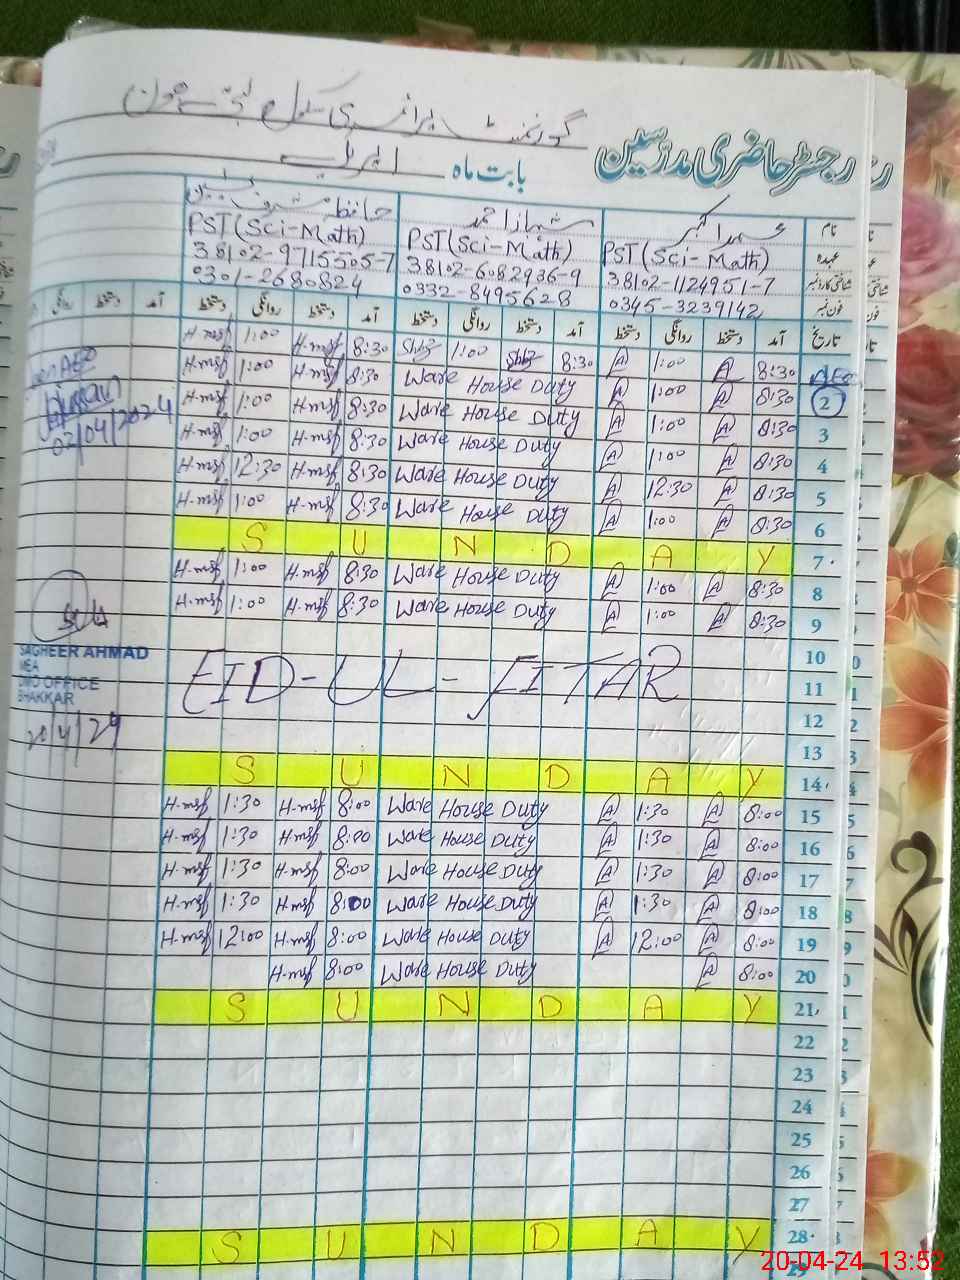 گورنمنٹ پرائمری سکول
رجسٹر حاضری مدرسین
بابت ماہ اپریل
نام محمد اکبر شہباز احمد حافظ
عہدہ PST (Sci-Math) PST(Sci-Math) PST(Sci-Math)
شناختی کارڈ نمبر 38102-1124951-7 38102-6082936-9 38102-9715505-7
فون نمبر 0345-3239142 0332-8495628 0301-2680824
تاریخ آمد دستخط روانگی دستخط آمد دستخط روانگی دستخط آمد دستخط روانگی دستخط آمد دستخط روانگی
H-msf 1:00 H-msf 8:30 1:00 8:30 A 1:00 A 8:30
H-msf 1:00 H-msf 8:30 Ware House Duty A 1:00 A 8:30 2
H-msf 1:00 H-msf 8:30 Ware House Duty A 1:00 A 8:30 3
H-msf 1:00 H-msf 8:30 Ware House Duty A 1:00 A 8:30 4
H-msf 12:30 H-msf 8:30 Ware House Duty A 12:30 A 8:30 5
H-msf 1:00 H-msf 8:30 Ware House Duty A 1:00 A 8:30 6
S U N D A Y 7
H-msf 1:00 H-msf 8:30 Ware House Duty A 1:00 A 8:30 8
H-msf 1:00 H-msf 8:30 Ware House Duty A 1:00 A 8:30 9
10
EID-UL-FITAR 11
12
13
S U N D A Y 14
H-msf 1:30 H-msf 8:00 Ware House Duty A 1:30 A 8:00 15
H-msf 1:30 H-msf 8:00 Ware House Duty A 1:30 A 8:00 16
H-msf 1:30 H-msf 8:00 Ware House Duty A 1:30 A 8:00 17
H-msf 1:30 H-msf 8:00 Ware House Duty A 1:30 A 8:00 18
H-msf 12:00 H-msf 8:00 Ware House Duty A 12:00 A 8:00 19
H-msf 8:00 Ware House Duty A 8:00 20
S U N D A Y 21
22
23
24
25
26
27
S U N D A Y 28
29
02/04/2024
SAGHEER AHMAD
MEA
DMO OFFICE
BHAKKAR
20/4/24
20-04-24 13:52